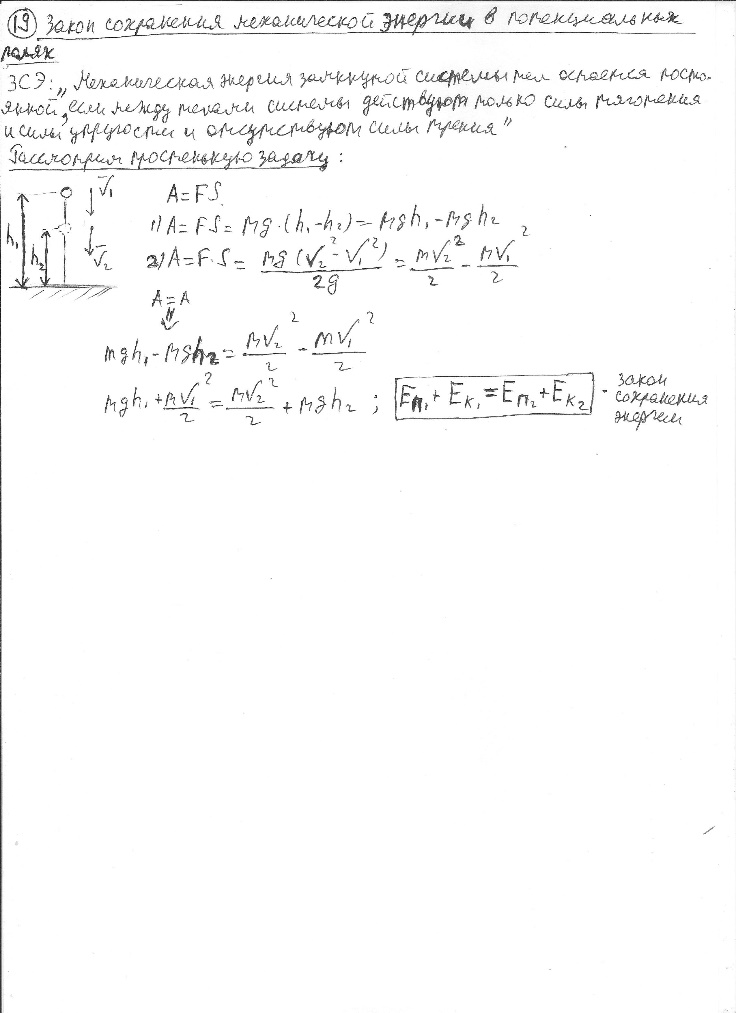 19 Закон сохранения механической энергии в потенциальных
полях
ЗСЭ: „Механическая энергия замкнутой системы тел остается посто-
янной, если между телами системы действуют только силы тяготения
и силы упругости и отсутствуют силы трения"
Рассмотрим простенькую задачу:
V̅₁ A = FS
h₁ h₂ 1) A = FS = mg·(h₁-h₂) = mgh₁ - mgh₂
V̅₂ 2) A = F·S = mg(V₂²-V₁²)/2g = mV₂²/2 - mV₁²/2
A = A
⇓
mgh₁ - mgh₂ = mV₂²/2 - mV₁²/2
mgh₁ + mV₁²/2 = mV₂²/2 + mgh₂ ; Eп₁ + Eк₁ = Eп₂ + Eк₂ - закон
сохранения
энергии